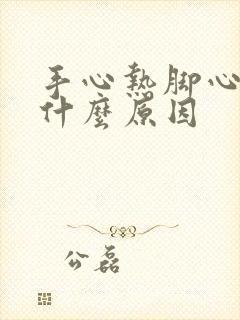 手心熱脚心
什麼原因
公磊